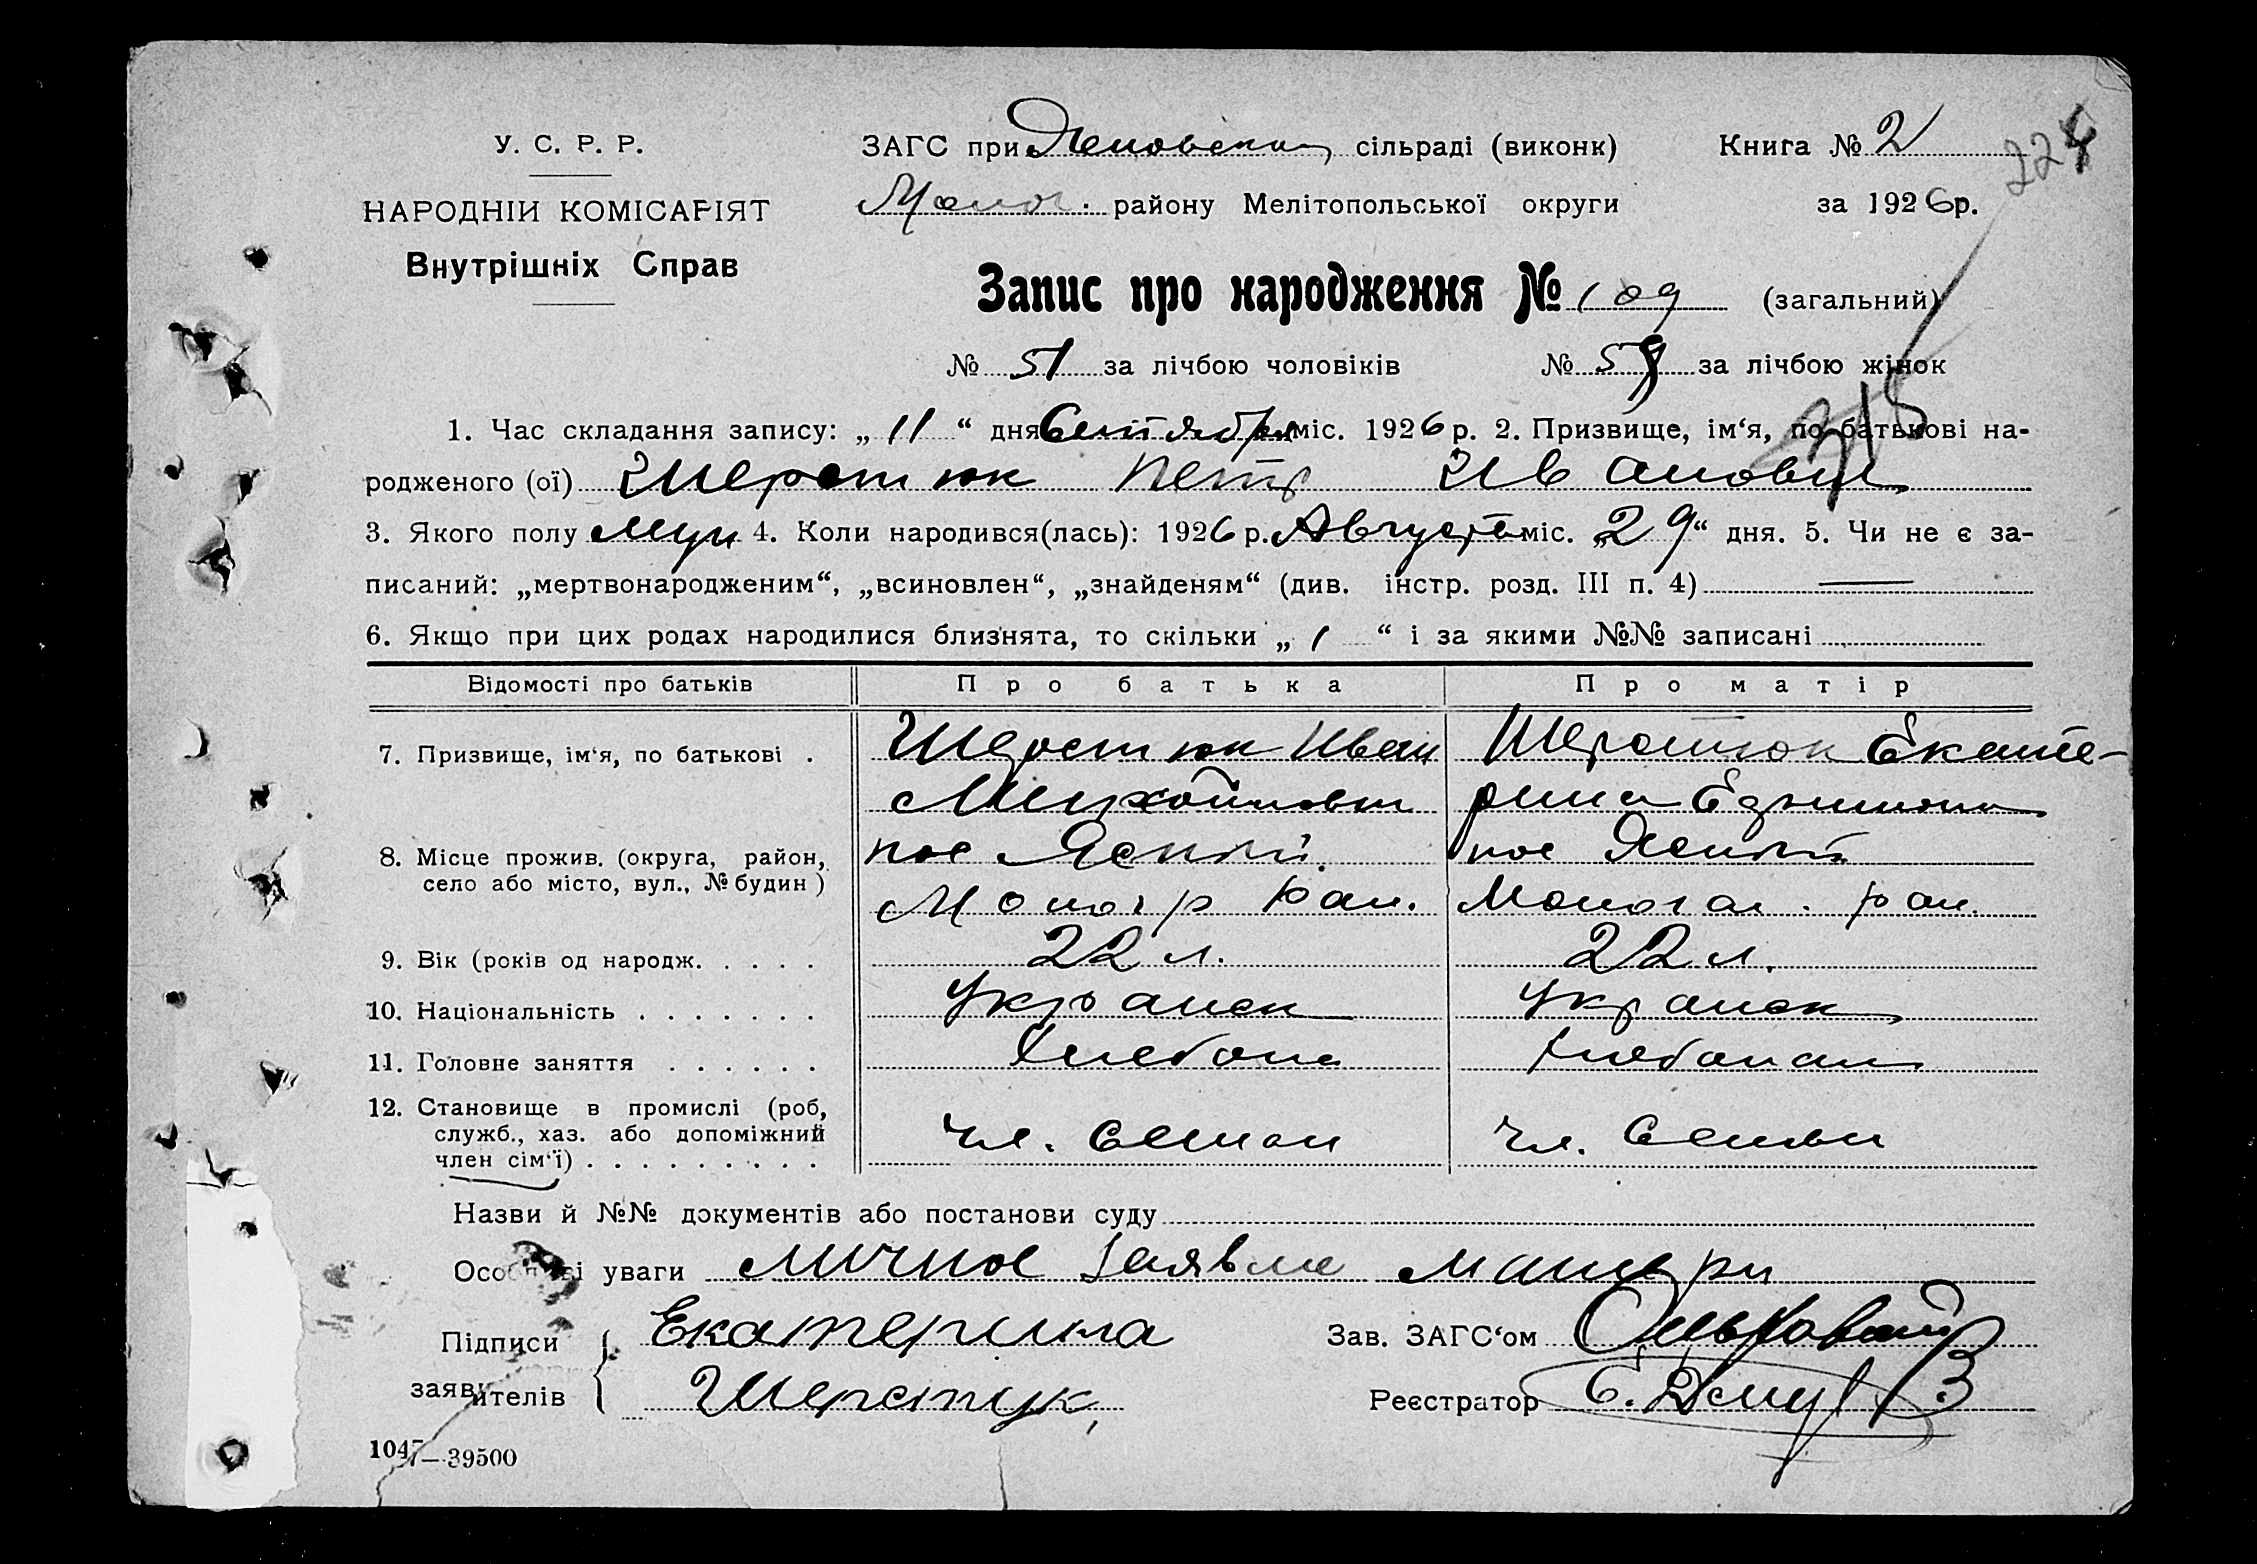 У. С. Р. Р.
НАРОДНІЙ КОМІСАРІЯТ
Внутрішніх Справ
ЗАГС при сільраді (виконк) Книга № 2
району Мелітопольської округи за 1926р.
224
Запис про народження № 109 (загальний)
№ 51 за лічбою чоловіків № 59 за лічбою жінок
1. Час складання запису: „ 11 “ дня Сентября міс. 1926 р. 2. Призвище, ім‘я, по батькові на-
родженого (ої) Шерстюк Петр Иванович
3. Якого полу Муж 4. Коли народився(лась): 1926 р. Августа міс. „29“ дня. 5. Чи не є за-
писаний: „мертвонародженим“, „всиновлен“, „знайденям“ (див. інстр. розд. III п. 4)
6. Якщо при цих родах народилися близнята, то скільки „ 1 “ і за якими №№ записані
Відомості про батьків Про батька Про матір
7. Призвище, ім‘я, по батькові . Шерстюк Иван Шерстюк Екате-
Михайлович рина
8. Місце прожив. (округа, район, пос Ясный пос Ясный
село або місто, вул., № будин ) рай. рай.
9. Вік (років од народж. . . . . 22 л. 22 л.
10. Національність . . . . . . . Украинск Украинск
11. Головне заняття . . . . . . Хлебопа Хлебопаш
12. Становище в промислі (роб, чл. семьи чл. семьи
служб., хаз. або допоміжний
член сім‘ї) . . . . . . . . .
Назви й №№ документів або постанови суду
Особливі уваги личное заявле матери
Підписи Екатерина Зав. ЗАГС‘ом
заявителів Шерстук Реєстратор
1047—39500